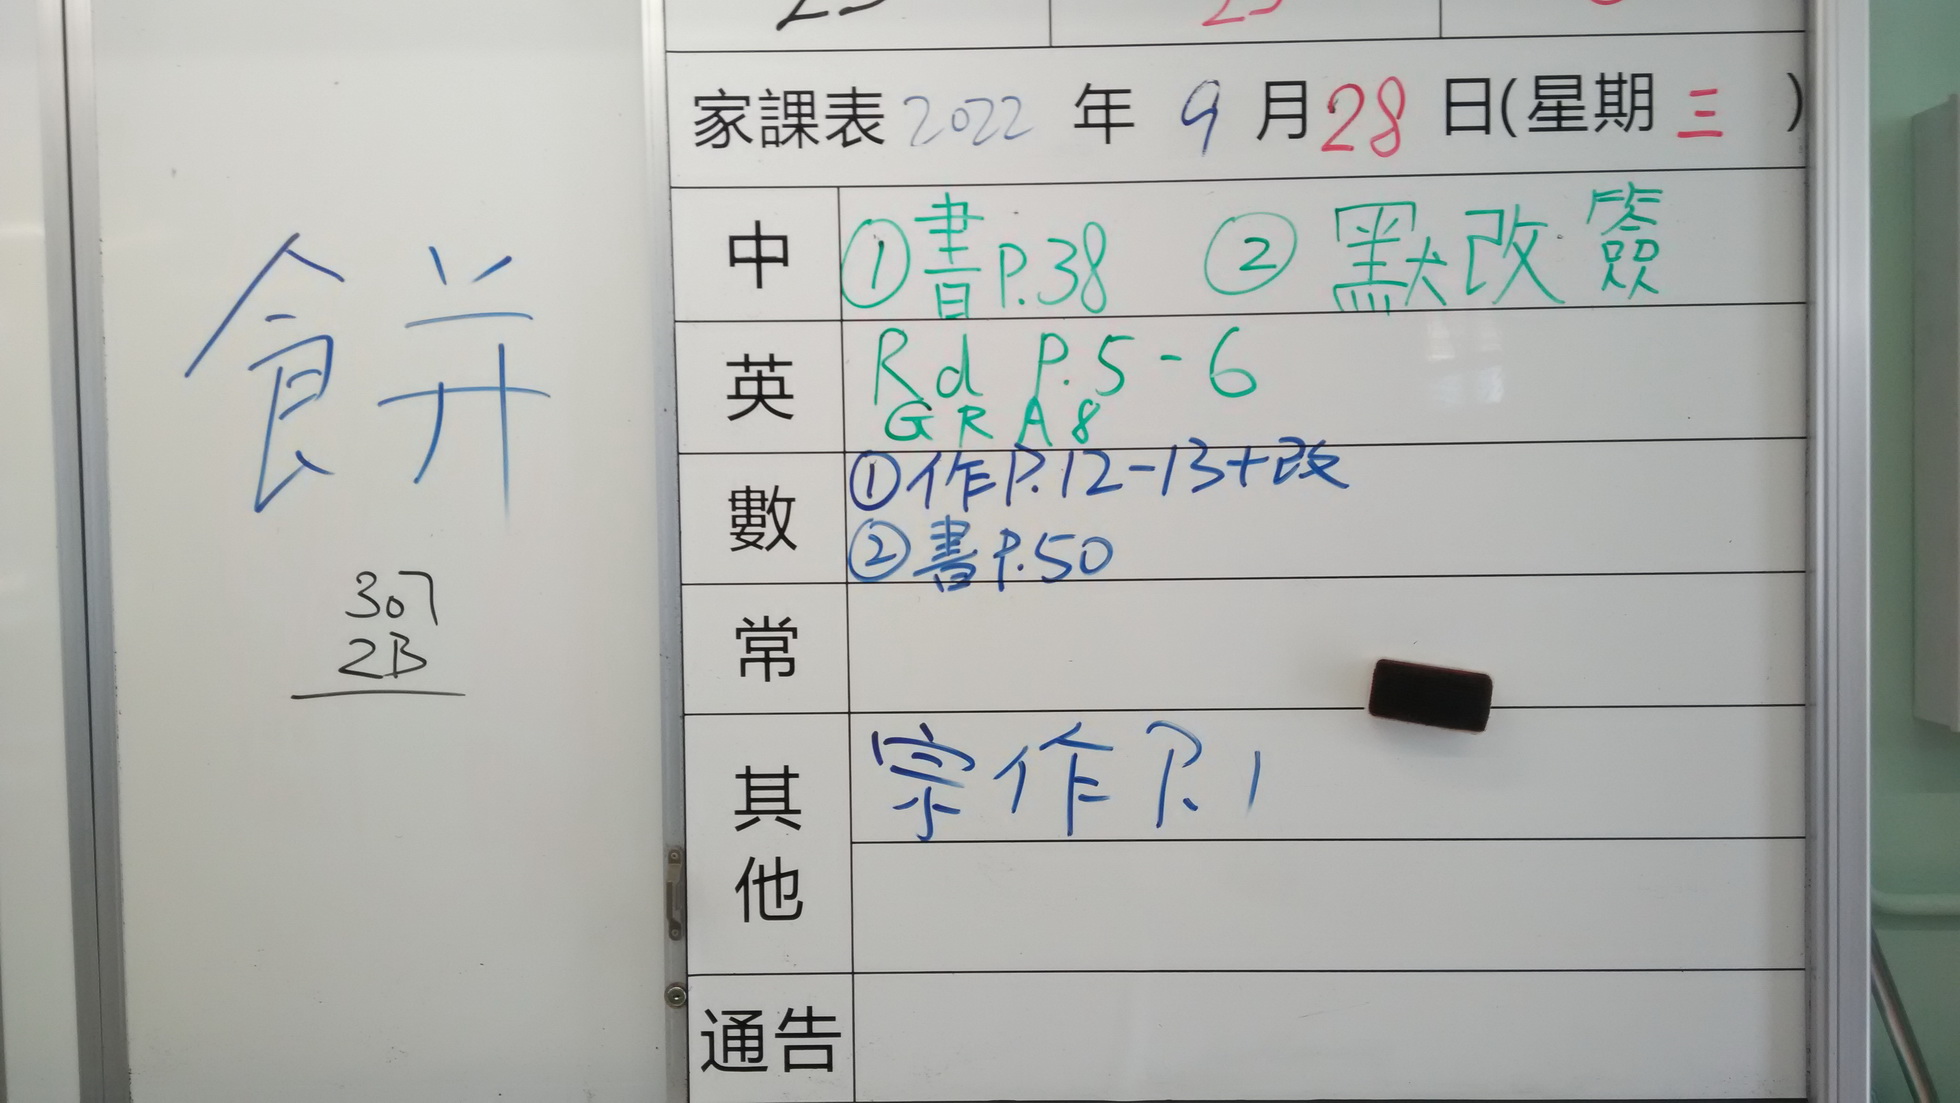 餅
307
2B
家課表 2022 年 9 月 28 日(星期 三 )
中 ①書P.38 ②默改簽
英 Rd P.5-6
GRA8
數 ①作P.12-13+改
②書P.50
常
其他 宗作P.1
通告